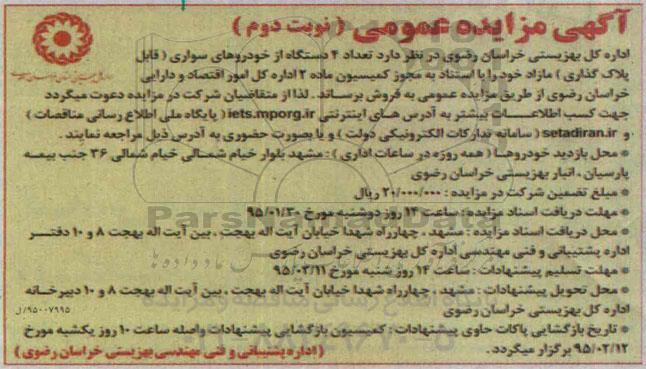 آگهی مزایده عمومی ( نوبت دوم )
اداره کل بهزیستی خراسان رضوی در نظر دارد تعداد ۴ دستگاه از خودروهای سواری ( قابل
پلاک گذاری ) مازاد خود را با استناد به مجوز کمیسیون ماده ۲ اداره کل امور اقتصاد و دارایی
خراسان رضوی از طریق مزایده عمومی به فروش برساند . لذا از متقاضیان شرکت در مزایده دعوت میگردد
جهت کسب اطلاعات بیشتر به آدرس های اینترنتی iets.mporg.ir ( پایگاه ملی اطلاع رسانی مناقصات )
و setadiran.ir ( سامانه تدارکات الکترونیکی دولت ) و یا بصورت حضوری به آدرس ذیل مراجعه نمایند .
* محل بازدید خودروها ( همه روزه در ساعات اداری ) : مشهد بلوار خیام شمالی خیام شمالی ۳۶ جنب بیمه
پارسیان ، انبار بهزیستی خراسان رضوی
* مبلغ تضمین شرکت در مزایده : ۲۰/۰۰۰/۰۰۰ ریال
* مهلت دریافت اسناد مزایده : ساعت ۱۴ روز دوشنبه مورخ ۹۵/۰۱/۳۰
* محل دریافت اسناد مزایده : مشهد ، چهارراه شهدا خیابان آیت اله بهجت ، بین آیت اله بهجت ۸ و ۱۰ دفتر
اداره پشتیبانی و فنی مهندسی اداره کل بهزیستی خراسان رضوی
* مهلت تسلیم پیشنهادات : ساعت ۱۴ روز شنبه مورخ ۹۵/۰۲/۱۱
* محل تحویل پیشنهادات : مشهد ، چهارراه شهدا خیابان آیت اله بهجت ، بین آیت اله بهجت ۸ و ۱۰ دبیرخانه
اداره کل بهزیستی خراسان رضوی
۹۵۰۰۷۹۹۵/ل
* تاریخ بازگشایی پاکات حاوی پیشنهادات : کمیسیون بازگشایی پیشنهادات واصله ساعت ۱۰ روز یکشبه مورخ
۹۵/۰۲/۱۲ برگزار میگردد .
( اداره پشتیبانی و فنی مهندسی بهزیستی خراسان رضوی )